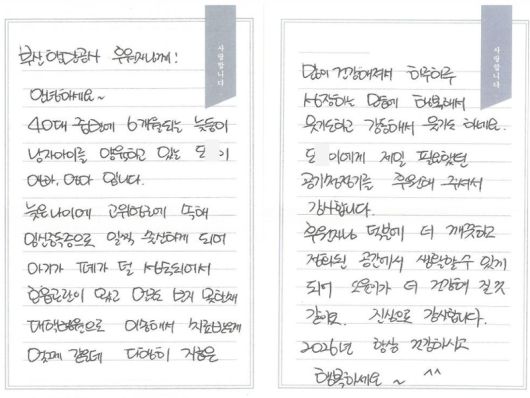 사랑합니다
부산항만공사 후원자님께!
안녕하세요~
40대 중반에 6개월되는 늦둥이
남자아이를 양육하고 있는 도 이
엄마, 입니다.
늦은나이에 고위험군에 속해
임신중독증으로 일찍 출산하게 되어
아기가 폐가 덜 성숙되어서
호흡곤란이 있고
대학병원으로 이송해서 치료받은게
엊그제 같은데 다행히 지금은
사랑합니다
많이 건강해져서 하루하루
성장하는 모습에 행복해서
웃기도하고 감동해서 울기도 하네요.
도 이에게 제일 필요했던
공기청정기를 후원해 주셔서
감사합니다.
후원자님 덕분에 더 깨끗하고
정화된 공간에서 생활할수 있게
되어 도윤이가 더 건강해 질것
같아요. 진심으로 감사합니다.
2026년 항상 건강하시고
행복하세요 ~ ^^